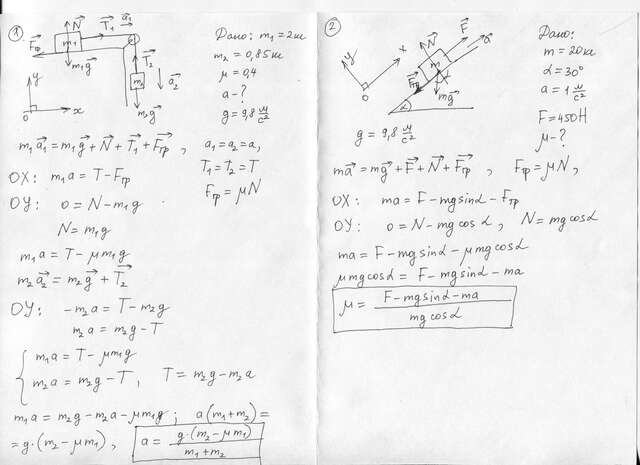 1
N⃗ T⃗₁ a⃗₁
F⃗тр m₁
T⃗₂
m₁g⃗
m₂ a⃗₂
y
m₂g⃗
0 x
Дано: m₁ = 2 кг
m₂ = 0,85 кг
μ = 0,4
a - ?
g = 9,8 м/с²
m₁a⃗₁ = m₁g⃗ + N⃗ + T⃗₁ + F⃗тр , a₁ = a₂ = a,
T₁ = T₂ = T
OX: m₁a = T - Fтр
Fтр = μN
OY: 0 = N - m₁g
N = m₁g
m₁a = T - μm₁g
m₂a⃗₂ = m₂g⃗ + T⃗₂
OY: -m₂a = T - m₂g
m₂a = m₂g - T
m₁a = T - μm₁g
m₂a = m₂g - T, T = m₂g - m₂a
m₁a = m₂g - m₂a - μm₁g ; a(m₁ + m₂) =
= g·(m₂ - μm₁), a = g·(m₂ - μm₁) / m₁ + m₂
2
y x
0
N⃗ F⃗
a⃗
m
F⃗тр
mg⃗
α
g = 9,8 м/с²
Дано:
m = 20 кг
α = 30°
a = 1 м/с²
F = 450 Н
μ - ?
ma⃗ = mg⃗ + F⃗ + N⃗ + F⃗тр , Fтр = μN,
OX: ma = F - mg sinα - Fтр
OY: 0 = N - mg cosα, N = mg cosα
ma = F - mg sinα - μmg cosα
μmg cosα = F - mg sinα - ma
μ = F - mg sinα - ma / mg cosα